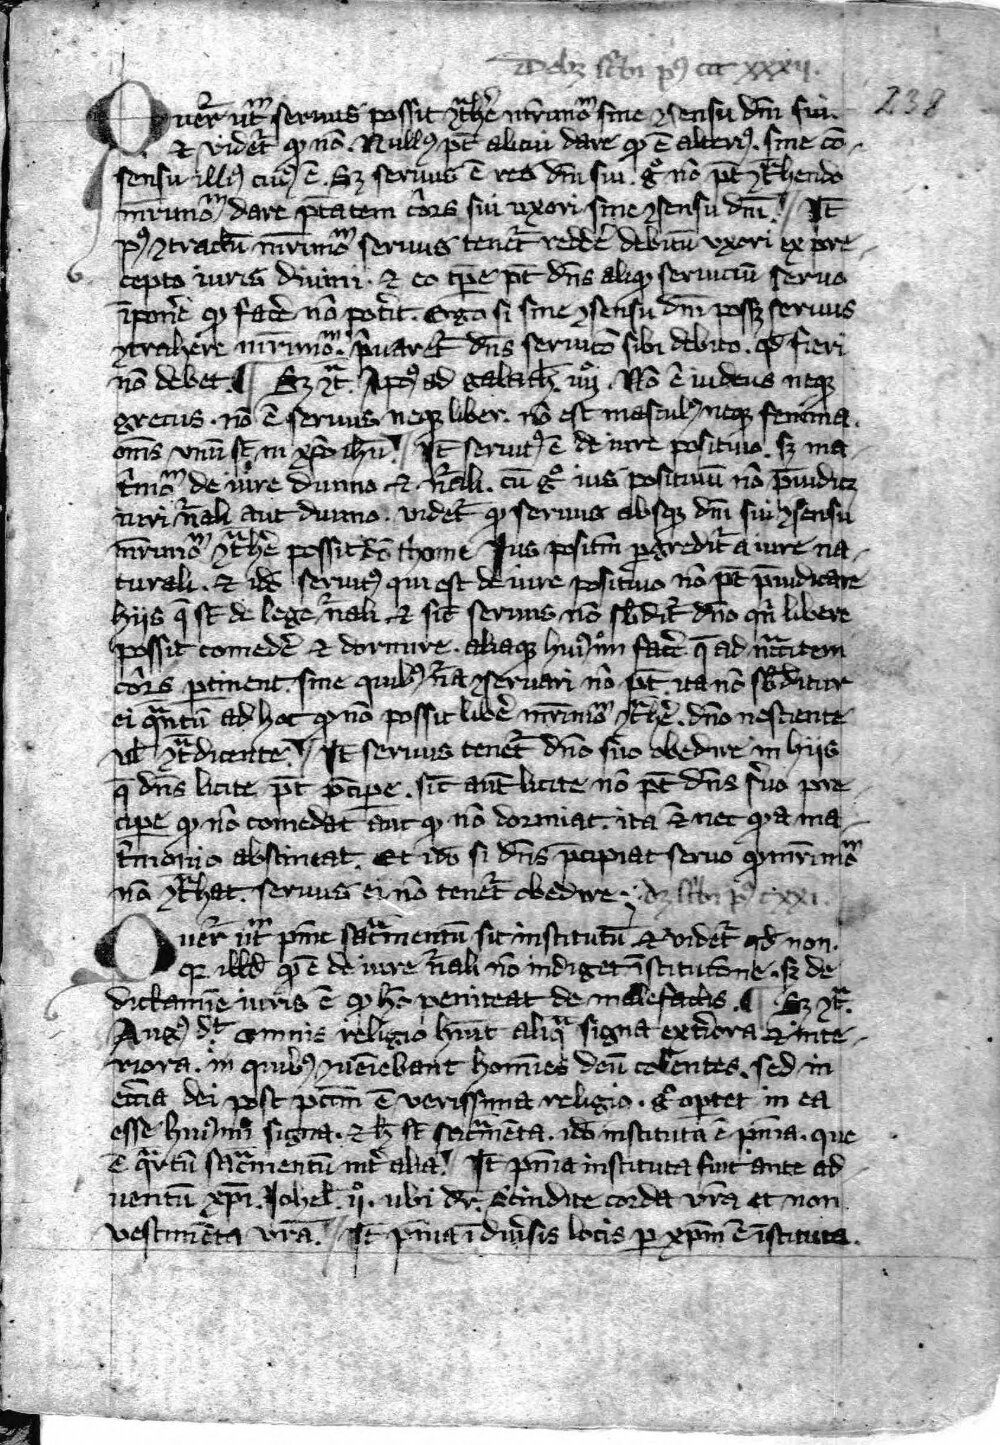 Debz scribi pꝰ cit xxxii.
238
Querͬ utͫ seruus possit ꝯtͣhe᷑ mr̄imoͫ sine ꝯsensu dn̄i sui.
⁊ videtͬ ꝙ nō. Nullꝰ pt̄ alicui dare qͩ ē alteriꝰ. sine cō-
sensu illiꝰ cuiꝰ ē. Sꝫ seruus ē res dn̄i sui. gͦ nō pt̄ ꝯtͣhendo
mr̄imoͫ dare ptātem cōrs sui uxori sine ꝯsensu dn̄i. It̄
pꝰ ꝯtractū mr̄imoͫ seruus tenetͬ redde᷑ debitū uxori ex pre-
cepto iuris diuini. ⁊ eo tp̄e pt̄ dn̄s aliqͩ seruiciū seruo
īpone᷑ qͩ face᷑ nō poterit. Ergo si sine ꝯsensu dn̄i possꝫ seruus
ꝯtrahere mr̄imoͫ. pͥuaretͬ dn̄s seruicō sibi debito. qd̄ fieri
nō debet. ¶ Sꝫ ꝯtͣ. Apꝰ ad galath. iiij. Nō ē iudeus neqꝫ
grecus. nō ē seruus neqꝫ liber. nō est masculꝰ neqꝫ femina.
om̄s vnū st̄ in xp̄o ih̄u. It̄ seruitꝰ ē de iure positiuo. sꝫ ma-
t̄moͫ de iure diuino ⁊ nͣali. cū gͦ ius positiuū nō p̄iudicꝫ
iuri nͣali aut diuino. videtͬ ꝙ seruus absqꝫ dn̄i sui ꝯsensu
mr̄imoͫ ꝯtͣhe᷑ possit. Scō thome Ius positiū ꝓgreditͬ a iure na-
turali. ⁊ idō seruitꝰ qui est de iure positiuo nō pt̄ p̄iudicare
hiis q̄ st̄ de lege nͣali ⁊ sic̄ seruus nō sbditͬ dn̄o qn̄ libere
possit comede᷑ ⁊ dormire. aliaqꝫ huiꝰmoi face᷑ q̄ ad nc̄citatem
cōrs ꝑtinent. sine quibꝰ nͣa ꝯseruari nō pt̄. ita nō sbditur
ei qͣntū ad hoc ꝙ nō possit libe᷑ mr̄imoͫ ꝯtͣhe᷑. dn̄o nesciente
ul̄ ꝯtͣdicente. It̄ seruus tenetͬ dn̄o suo obedire in hiis
q̄ dn̄s licite pt̄ p̄cipe. sic̄ aut̄ licite nō pt̄ dn̄s sͬuo pre-
cipe ꝙ nō comedat aut ꝙ nō dormiat. ita ⁊ nec ꝙ a ma-
t̄monio abstineat. Et idō si dn̄s p̄cipiat seruo ꝙ mr̄imoͫ
nō ꝯtͣhat. seruus ei nō tenetͬ obedire. dꝫ scribi pꝰ cxxi.
Querͬ utͫ pn̄ie sacͣmentū sit institutū ⁊ videtͬ qd̄ non.
qꝛ illd̄ qͩ ē de iure nͣali nō indiget īstitucōne. sꝫ de
dictamīe iuris ē ꝙ hō peniteat de malefactis. ¶ Sꝫ ꝯtͣ.
Augꝰ dt̄. omnis religio hūit aliqͣ signa exteriora ⁊ inte-
riora. in quibꝰ ꝯueniebant homīes deū colentes. sed in
ecc̄ia dei post pctm̄ ē verissima religio. gͦ optet in ea
esse huiꝰmoi signa. ⁊ h̄ st̄ sacͣmenta. idō instituta ē pn̄ia. que
ē qͣrtū sacͣmentū int̄ alia. It̄ pn̄ia instituta fuit ante ad-
uentū xp̄i. Iohel. ijͦ. ubi dr̄. Scindite corda vr̄a et non
vestimēta vr̄a. It̄ pn̄ia ī diuͥsis locis ꝑ xp̄m ē īstituta.